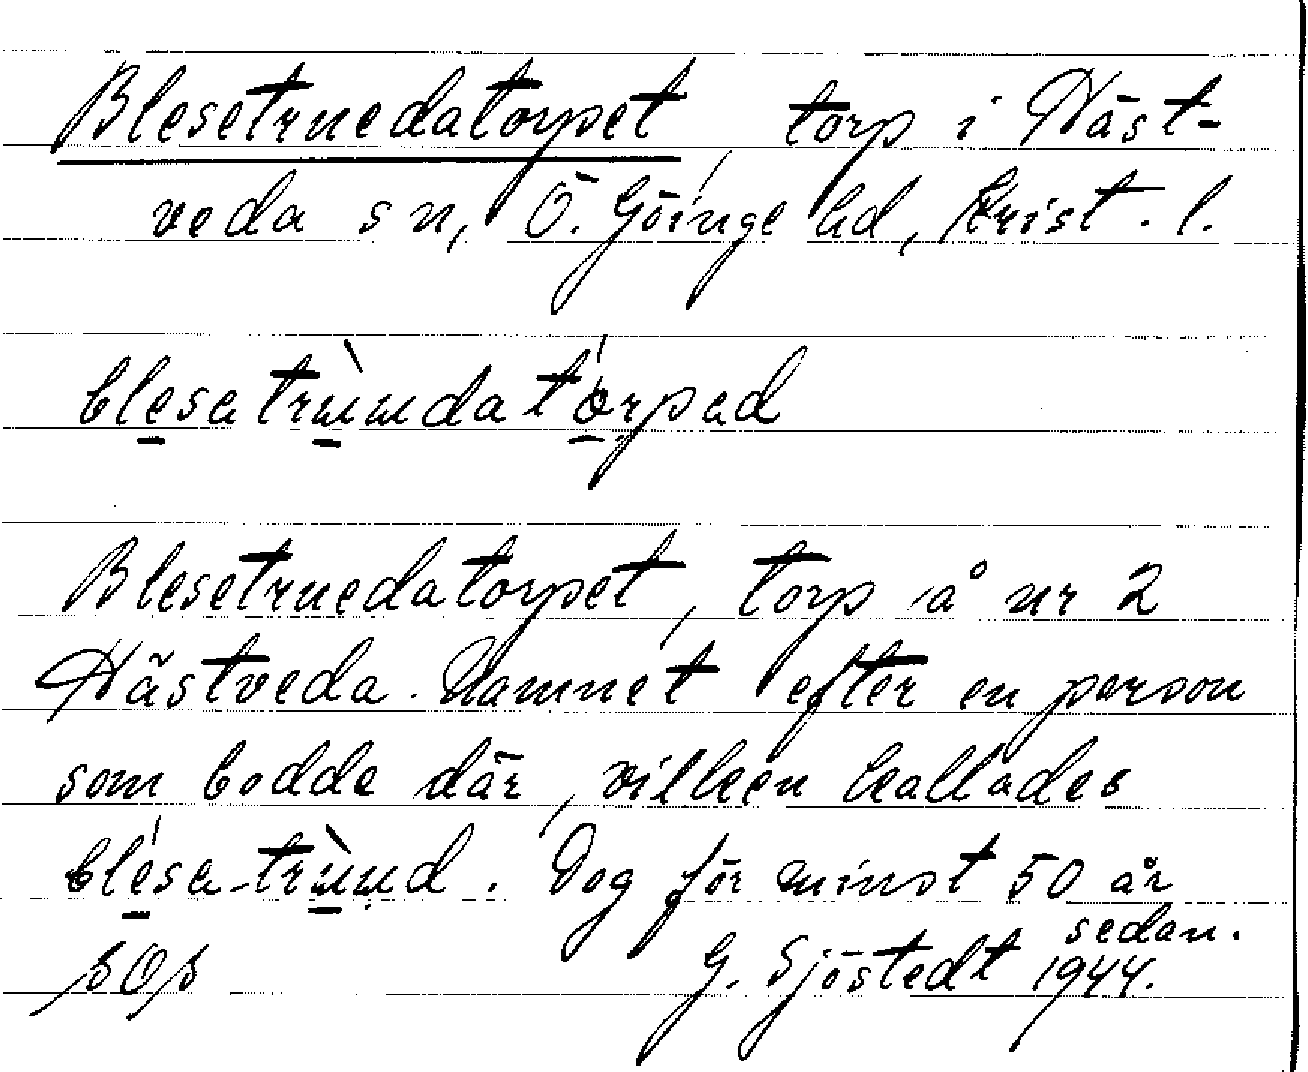 Blesetruedatorpet, torp i Häst-
veda sn, Ö. Göinge hd, Krist. l.
blesatrùudatórpad
Blesetruedatorpet, torp å nr 2
Hästveda. Namnet efter en person
som bodde där, vilken kallades
blésa-trùud. Dog för minst 50 år
sedan.
sOs G. Sjöstedt 1944.